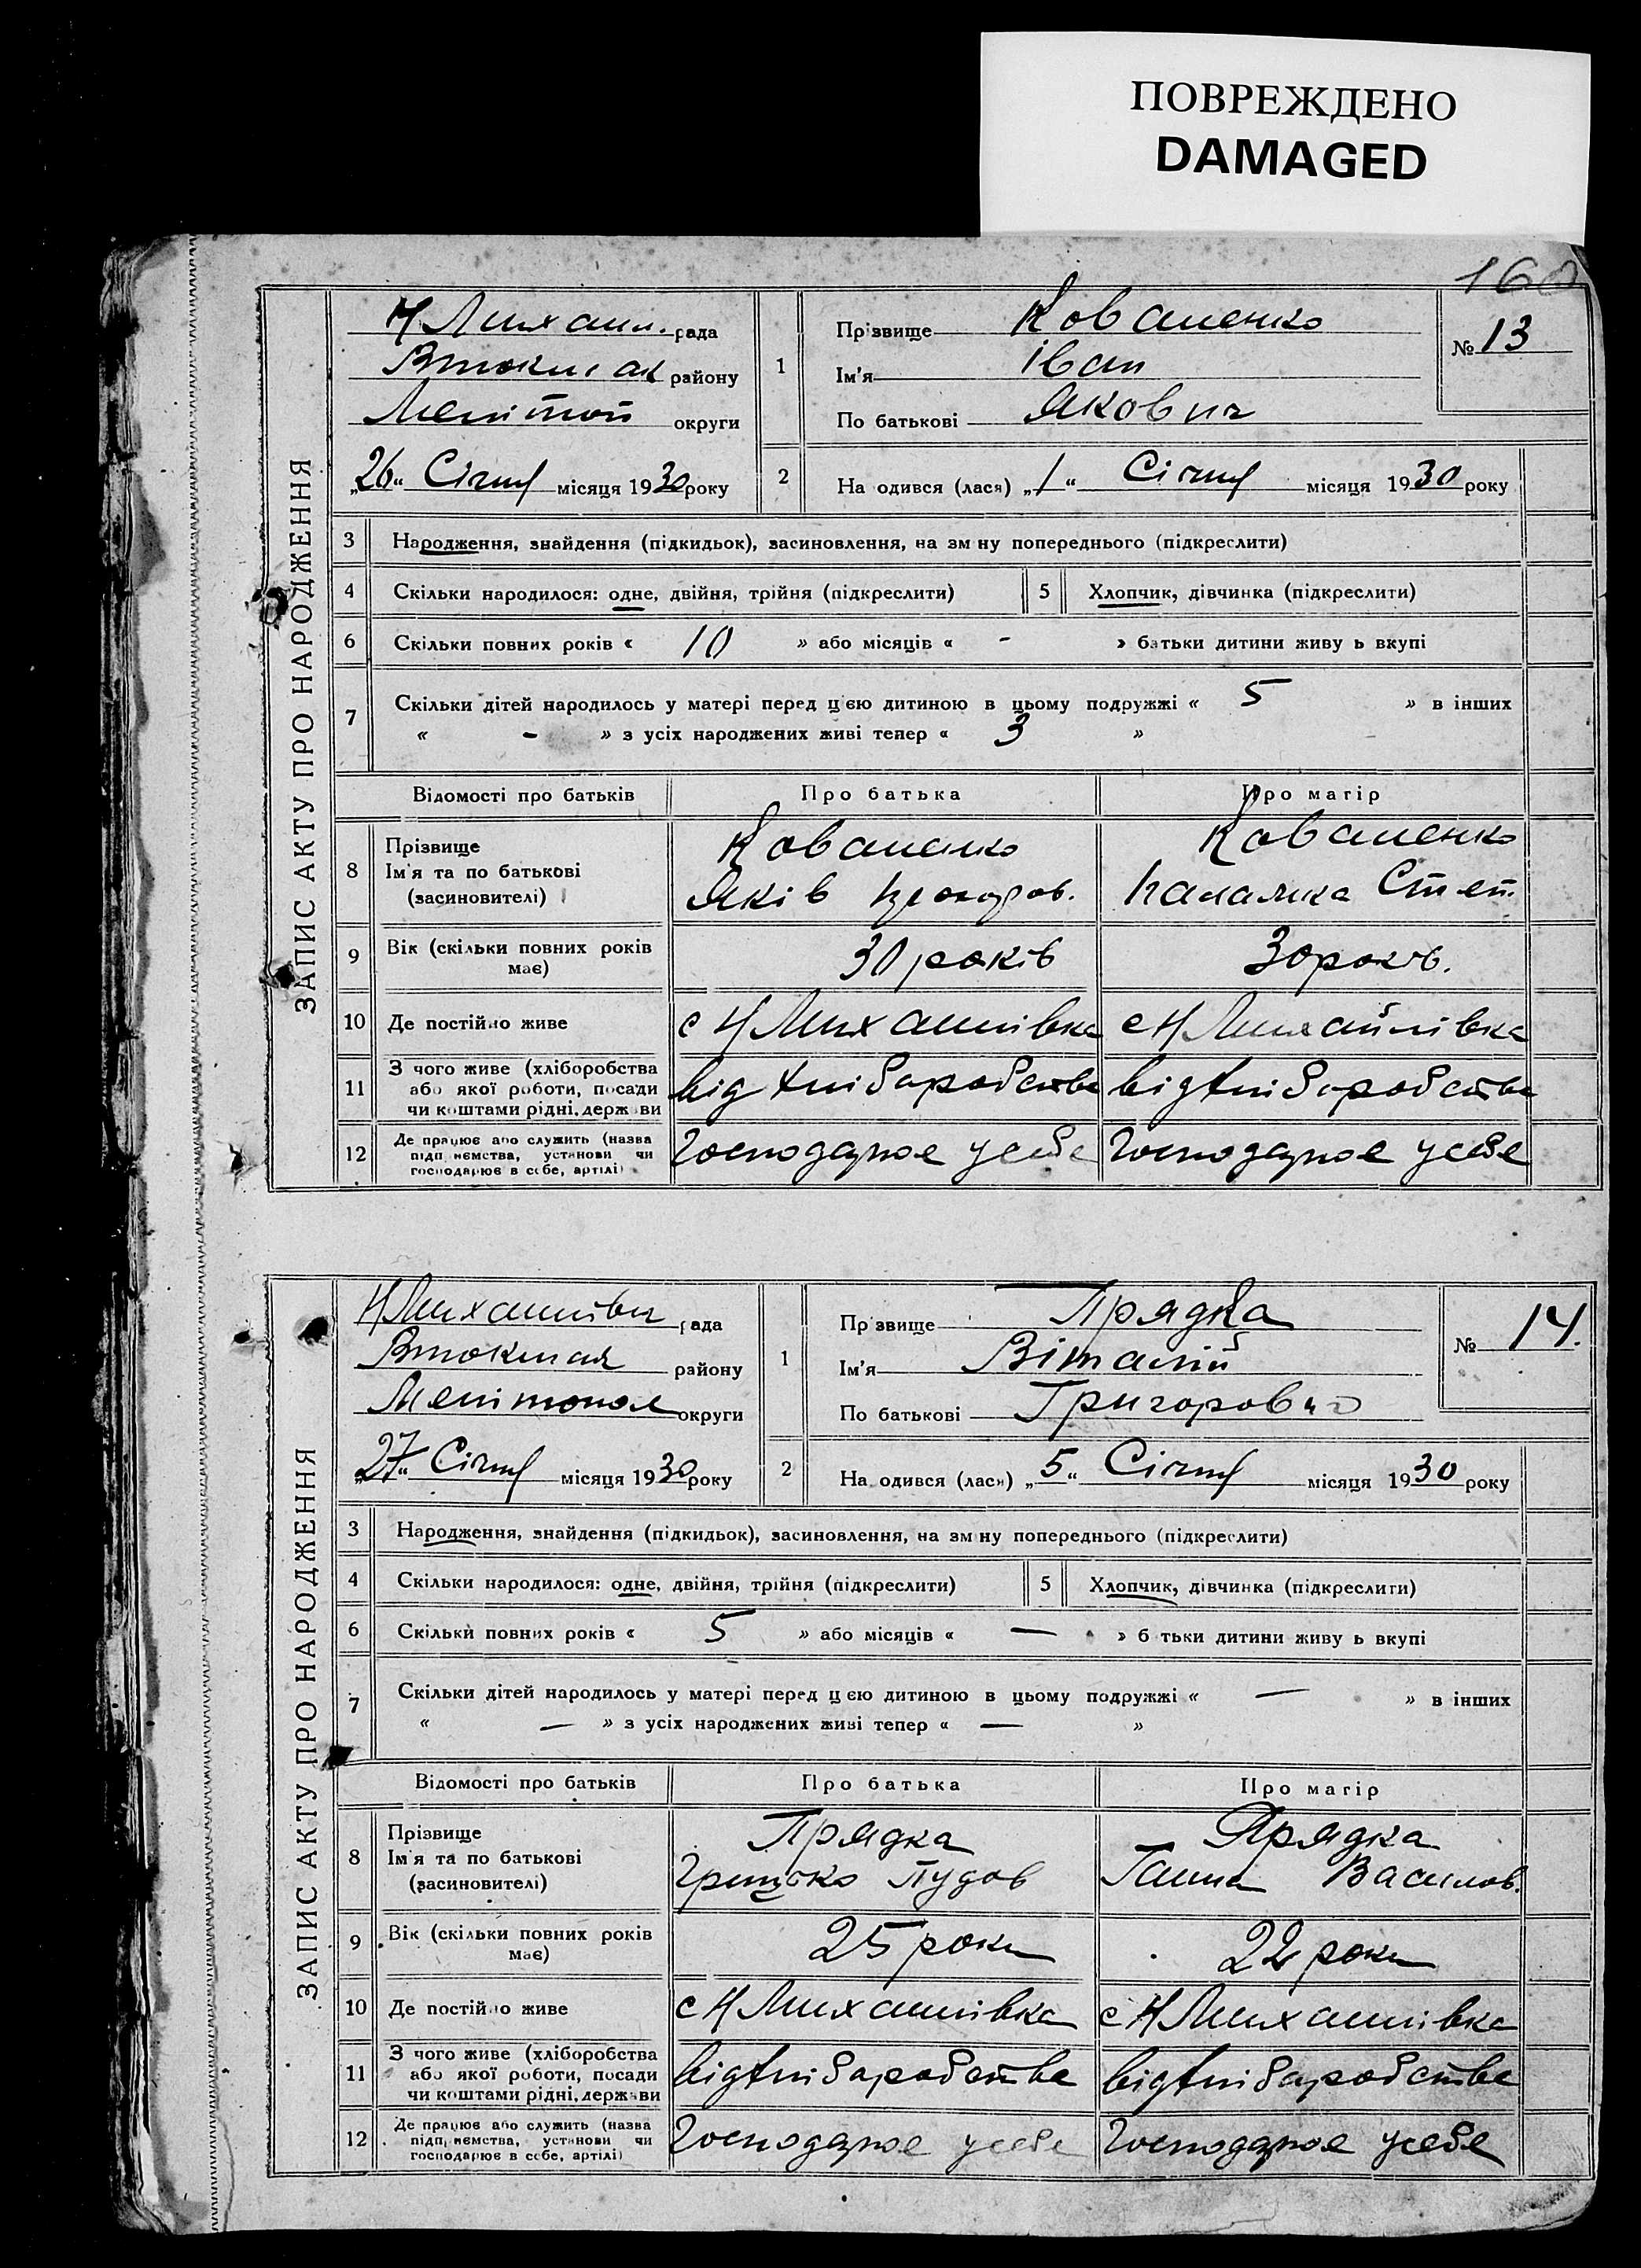 ПОВРЕЖДЕНО
DAMAGED
160
ЗАПИС АКТУ ПРО НАРОДЖЕННЯ
Н Михайл. рада
Втокмак району
Мелітоп округи
„26“ Січня місяця 1930 року
1
Пр звище Коваленко
Ім'я Іван
По батькові Якович
№ 13
2
На одився (лася) „1“ Січня місяця 1930 року
3 Народження, знайдення (підкидьок), засиновлення, на зм ну попереднього (підкреслити)
4 Скільки народилося: одне, двійня, трійня (підкреслити) 5 Хлопчик, дівчинка (підкреслити)
6 Скільки повних років « 10 » або місяців « - » батьки дитини живу ь вкупі
7 Скільки дітей народилось у матері перед цією дитиною в цьому подружжі « 5 » в інших
« - » з усіх народжених живі тепер « 3 »
Відомості про батьків Про батька Про матір
8 Прізвище
Ім'я та по батькові
(засиновителі)
Коваленко
Яків Прокоров.
Коваленко
Палажка Степ.
9 Вік (скільки повних років має) 30 років 30 років.
10 Де постійно живе с Н Михайлівка с Н Михайлівка
11 З чого живе (хліборобства
або якої роботи, посади
чи коштами рідні, держави
від хліборобства від хліборобства
12 Де працює або служить (назва
підприємства, установи чи
господарює в себе, артілі)
Господарює усебе Господарює усебе
ЗАПИС АКТУ ПРО НАРОДЖЕННЯ
Н Михайлівки рада
Втокмак району
Мелітопол округи
„27“ Січня місяця 1930 року
1
Пр звище Прядка
Ім'я Віталій
По батькові Григорович
№ 14.
2
На одився (лася) „5“ Січня місяця 1930 року
3 Народження, знайдення (підкидьок), засиновлення, на зм ну попереднього (підкреслити)
4 Скільки народилося: одне, двійня, трійня (підкреслити) 5 Хлопчик, дівчинка (підкреслити)
6 Скільки повних років « 5 » або місяців « — » б тьки дитини живу ь вкупі
7 Скільки дітей народилось у матері перед цією дитиною в цьому подружжі « — » в інших
« — » з усіх народжених живі тепер « — »
Відомості про батьків Про батька Про матір
8 Прізвище
Ім'я та по батькові
(засиновителі)
Прядка
Грицько Пудов
Прядка
Ганна Василов.
9 Вік (скільки повних років має) 25 роки 22 роки
10 Де постійно живе с Н Михайлівка с Н Михайлівка
11 З чого живе (хліборобства
або якої роботи, посади
чи коштами рідні, держави
від хліборобства від хліборобства
12 Де працює або служить (назва
підприємства, установи чи
господарює в себе, артілі)
Господарює усебе Господарює усебе